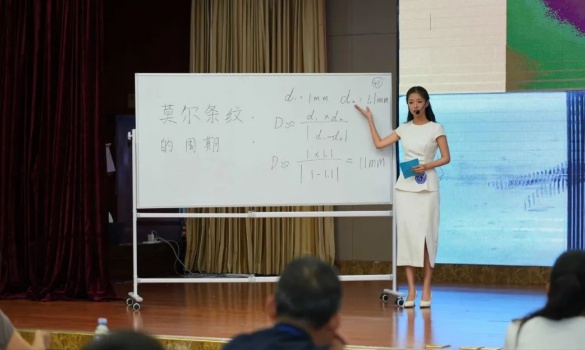 莫尔条纹
的周期
d₁=1mm d₂=1.1mm
D≈ d₁×d₂ / |d₁-d₂|
D≈ 1×1.1 / |1-1.1| = 11mm